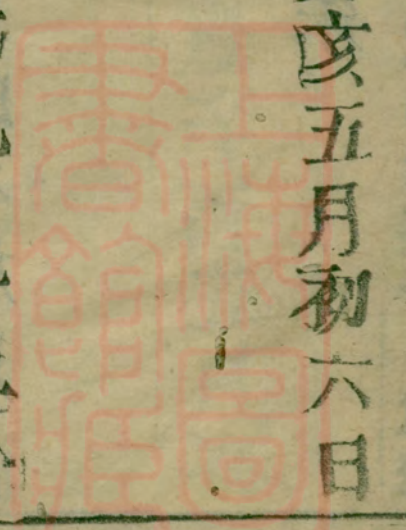 亥五月初六日
上海圖
書館藏